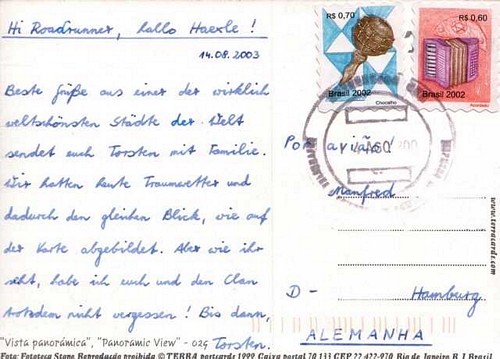 Hi Roadrunner, hallo Haexle !
14.08.2003
Beste Grüße aus einer der wirklich
weltschönsten Städte der Welt
sendet euch Torsten mit Familie.
Wir hatten heute Traumwetter und
dadurch den gleichen Blick, wie auf
der Karte abgebildet. Aber wie ihr
seht, habe ich euch und den Clan
trotzdem nicht vergessen ! Bis dann,
Torsten.
"Vista panorâmica", "Panoramic View" - 029
Foto: Fototeca Stone Reprodução proibida © TERRA postcards 1999 Caixa postal 70 133 CEP 22 422-970 Rio de Janeiro R J Brasil
R$ 0,70
Chocalho
Brasil 2002
R$ 0,60
Acordeão
Brasil 2002
Por avião!
Manfred
D - Hamburg
ALEMANHA
www.terracard.com